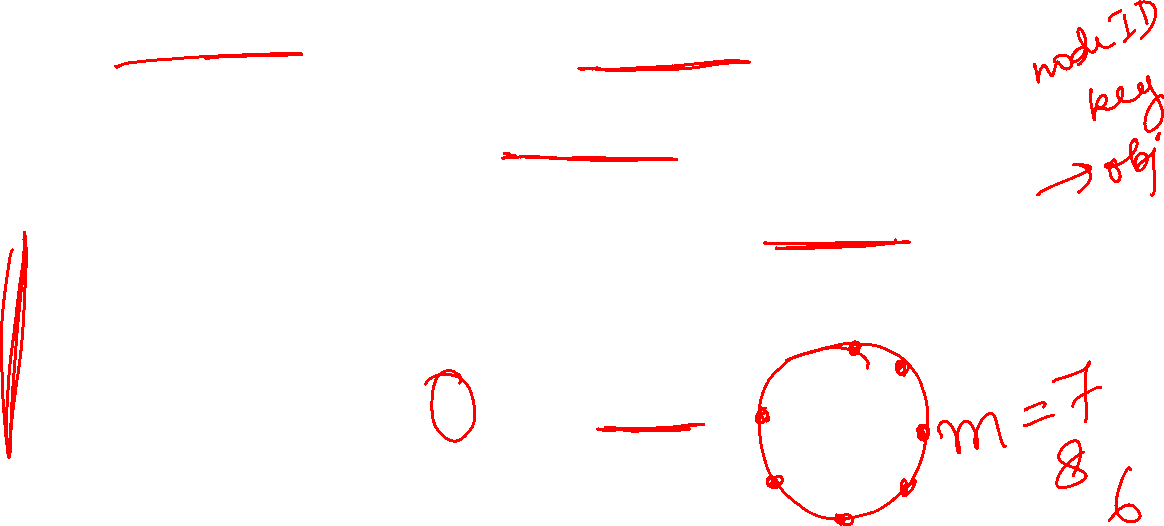 node ID
key
→ obj
0
m = 7
8
6